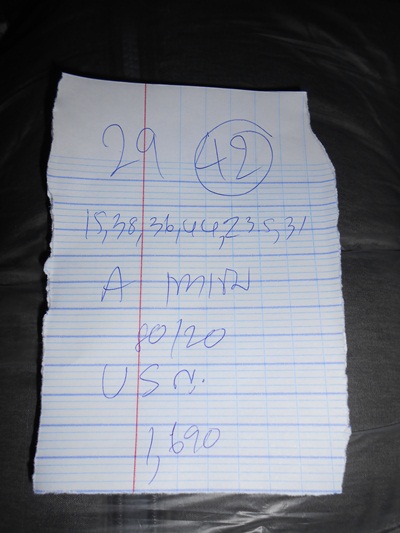 29 42
15,38,36,44,23.5,31
A
80/20
U S ญ.
1,690